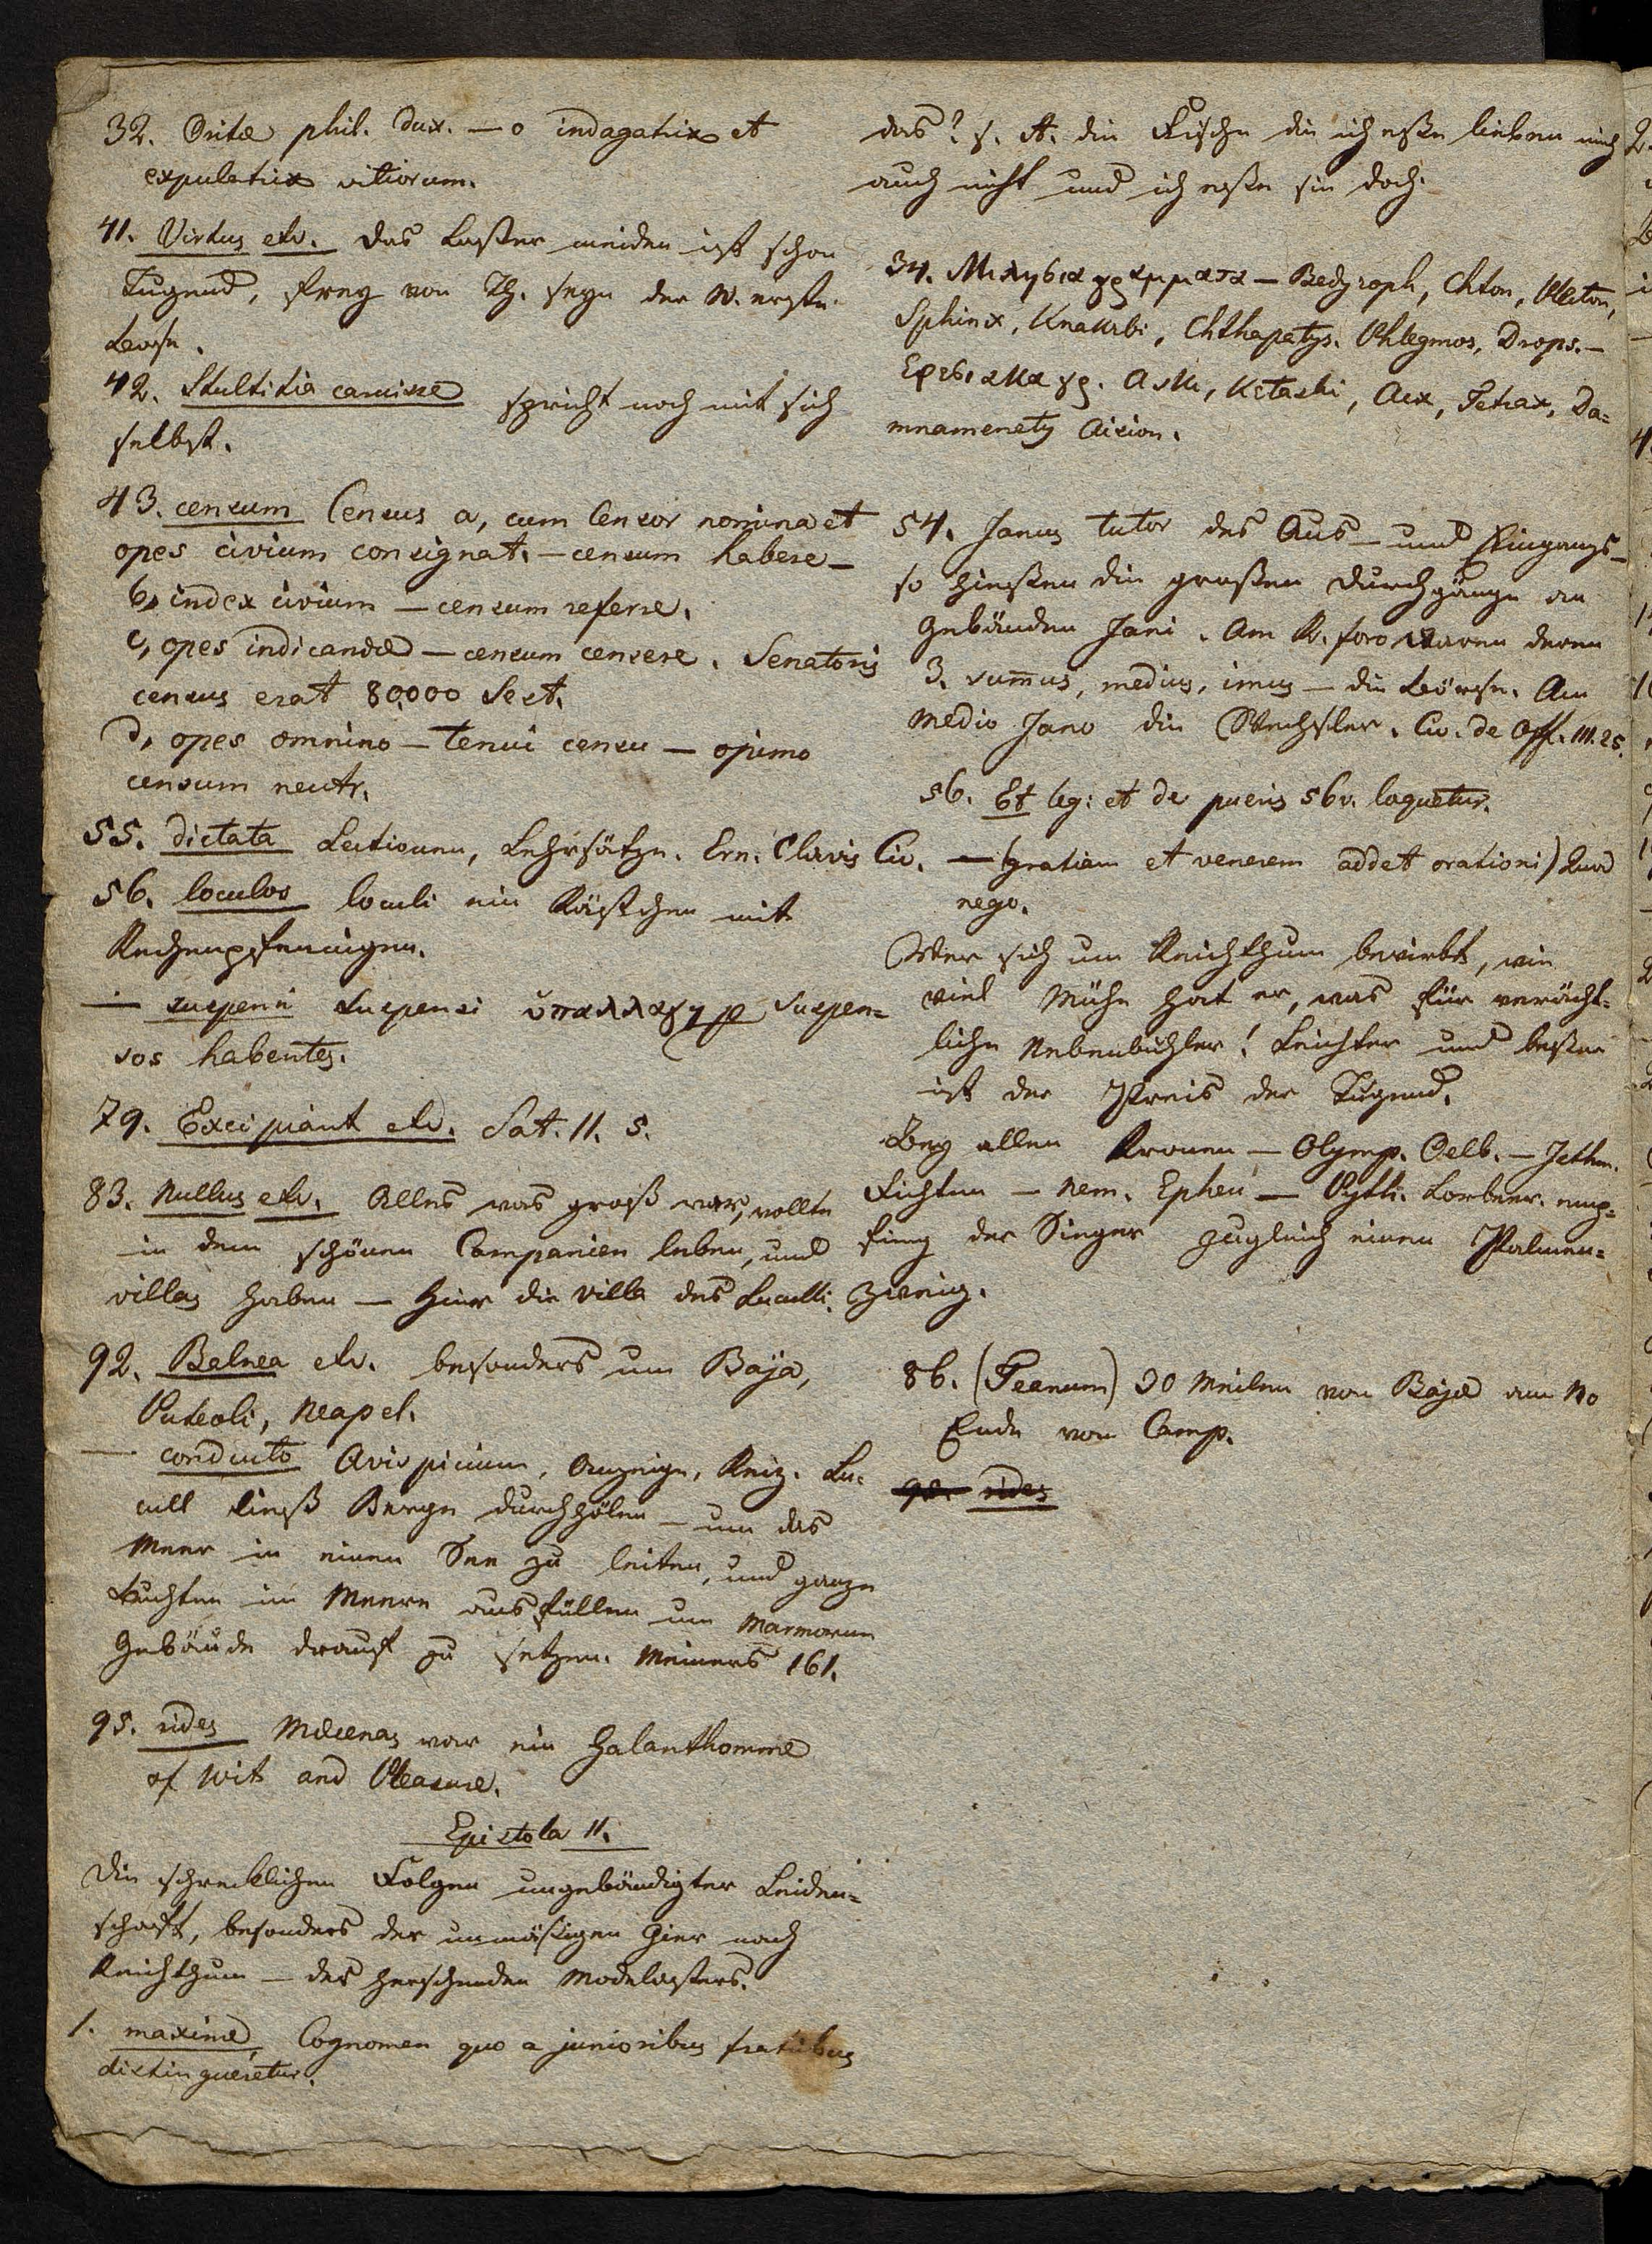 32. O vitæ phil. dux. — o indagatrix et
expultrix vitiorum.
41. Virtus etc. Das Laster meiden ist schon
Tugend, frey von Th. seyn der W. erste
Lehre.
42. Stultitia caruisse spricht noch mit sich
selbst.
43. censum Census a, cum Censor nomina et
opes civium consignat. — censum habere —
b, index civium — censum referre.
c, opes indicandæ — censum censere. Senatoris
census erat 80,000 Sest.
d, opes omnino — tenui censu — opimo
censum neutr.
55. dictata Lectionen, Lehrsätze. Ern. Clavis Cic.
56. loculos loculi ein Kästchen mit
Rechenpfenningen.
— suspensi suspensi ὑπαλλαγη p suspen-
sos habentes.
79. Excipiant etc. Sat. II. 5.
83. Nullus etc. Alles was groß war, wollte
in dem schönen Campanien leben, und
villas haben — hier die Villa des Luculli.
92. Balnea etc. besonders um Baja,
Puteoli, Neapel.
— conducto Avispicium, Anzeige, Reiz. Lu-
cull ließ Berge durchhölen — um das
Meer in einen See zu leiten, und ganze
Buchten im Meere ausfüllen um Marmorne
Gebäude drauf zu setzen. Meiners 161.
95. rides Mæcenas war ein Galanthomme
of Wit and Pleasure.
Epistola II.
Die schrecklichen Folgen ungebändigter Leiden-
schaft, besonders der unmäßigen Gier nach
Reichthum — des herschenden Modelasters.
1. maxime Cognomen quo a junioribus fratribus
distingueretur.
das? s. A. die Fische die ich eße lieben mich
auch nicht und ich eße sie doch.
34. Μιλησια γραμματα — Bedyroph, Chton, Plecton,
Sphinx, Knakzbi, Chthapatys. Phlegmos, Drops. —
Εφεσιακα γρ. Aski, Kataski, Aix, Tetrax, Da-
mnamenety Aision.
54. Janus tutor des Aus- und Eingangs —
so hießen die großen Durchgänge an
Gebäuden Jani. Am R. foro waren deren
3. sum̄us, medius, imus — die Börse. Am
Medio Jano die Wechsler. Cic. de Off. III. 25.
56. Et leg: et de pueris 56v. loquetur.
— (gratiam et venerem addet orationi) Quod
nego.
Wer sich um Reichthum bewirbt, wie
viel Mühe hat er, was für verächt-
liche Nebenbuhler! Leichter und beßer
ist der Preis der Tugend.
Bey allen Kronen — Olymp. Oelb. — Isthm.
Fichten — Nem. Epheu — Pyth. Lorbeer. emp-
fieng der Sieger zugleich einen Palmen-
zweig.
86. (Teanum) 30 Meilen von Bajæ am No
Ende von Camp.
95. rides